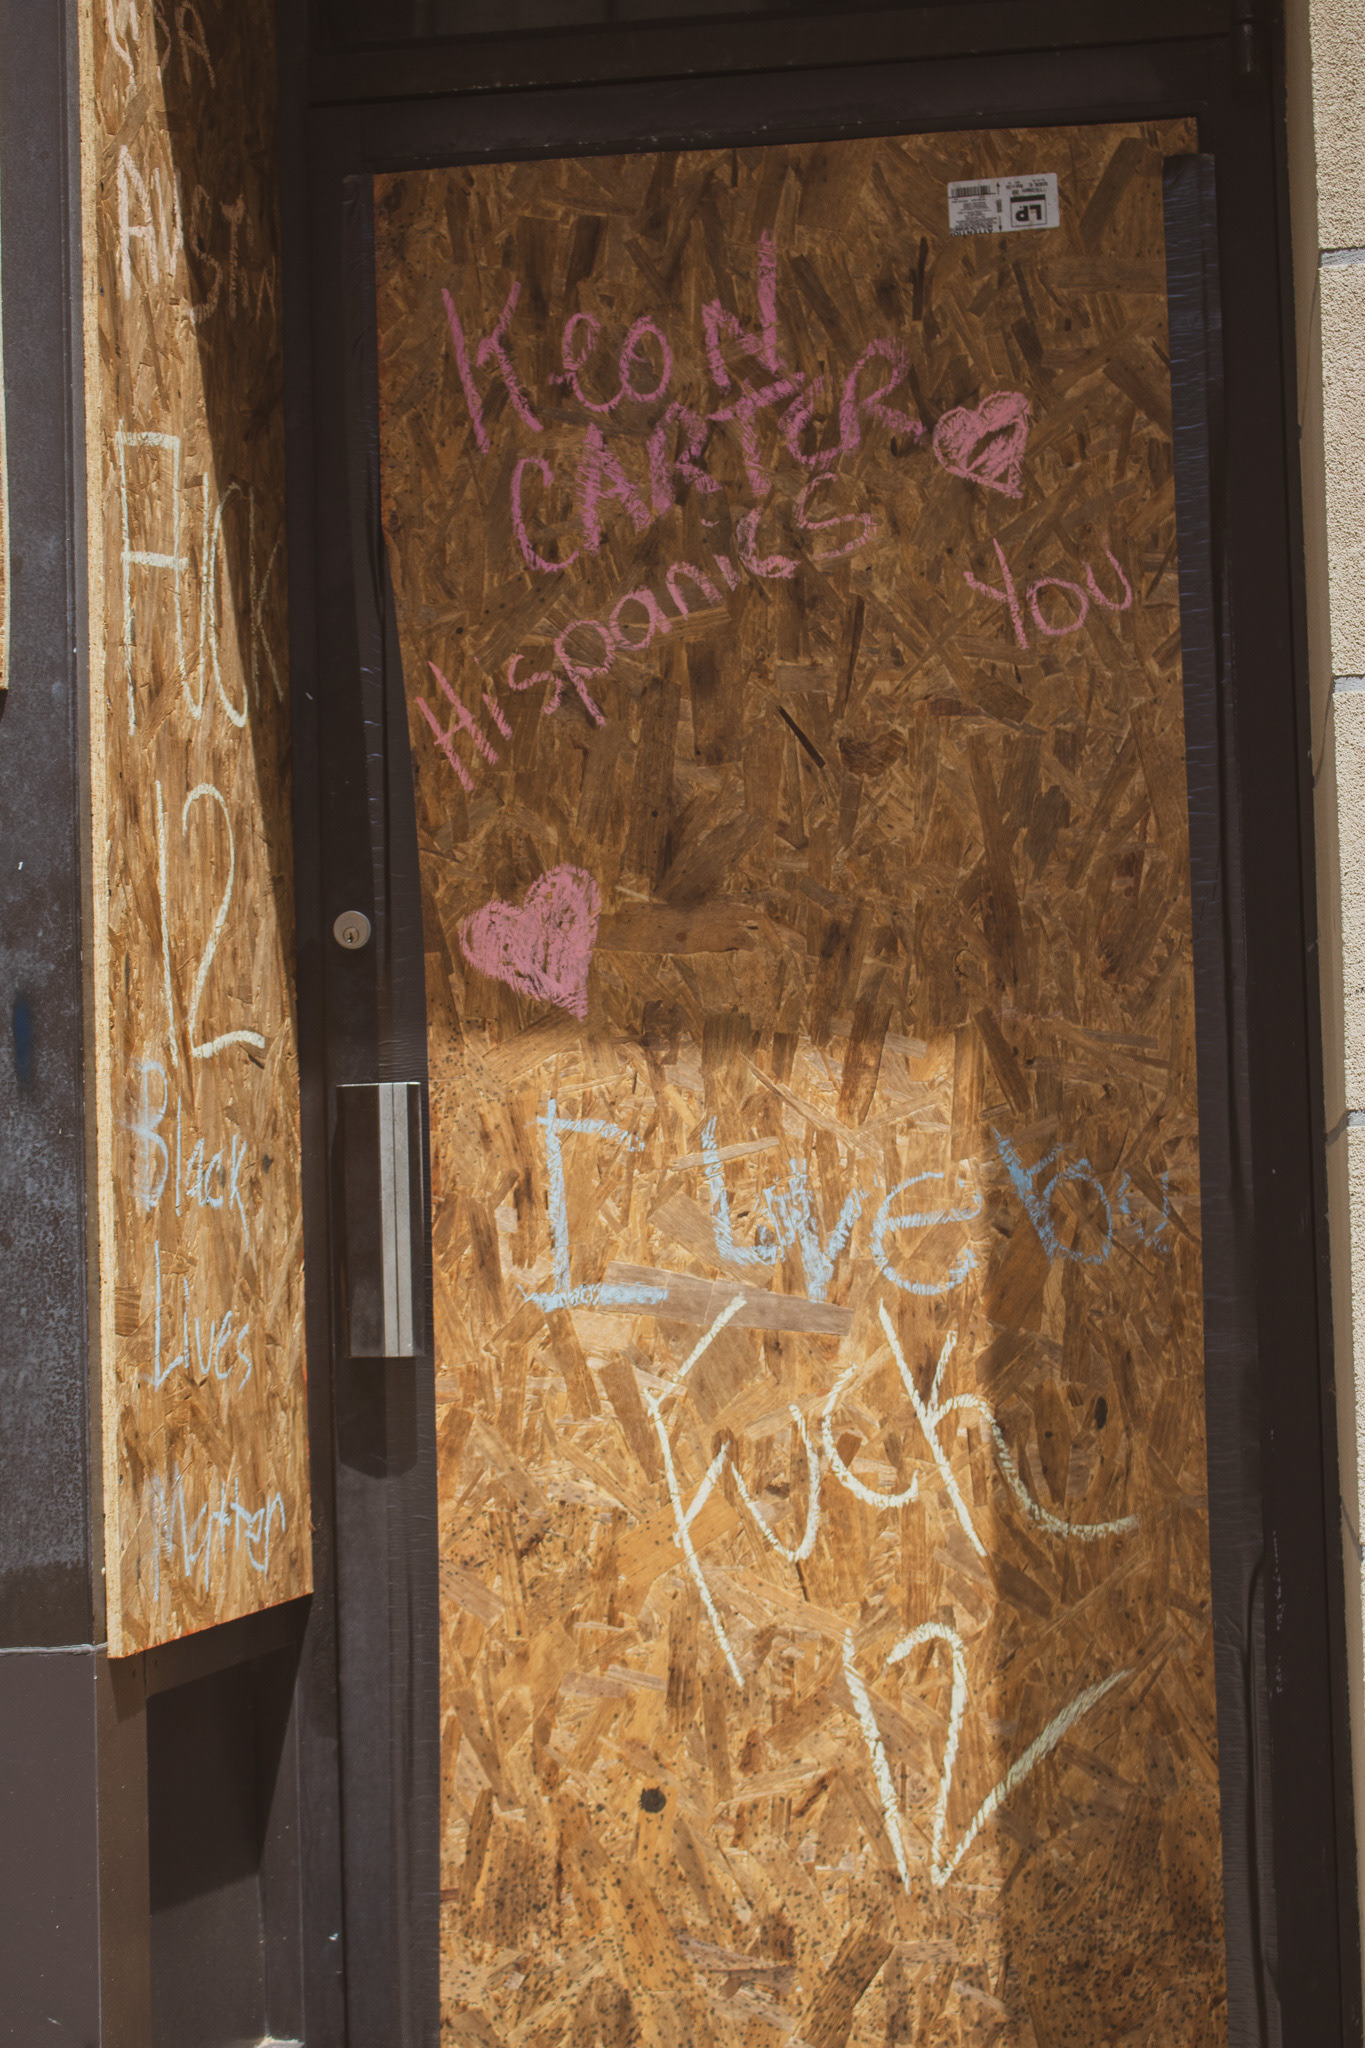 Fuck
12
Black
Lives
Matter
KeoN
CARTER
Hispanics ♥
You
I Love You
Fuck
12
LP